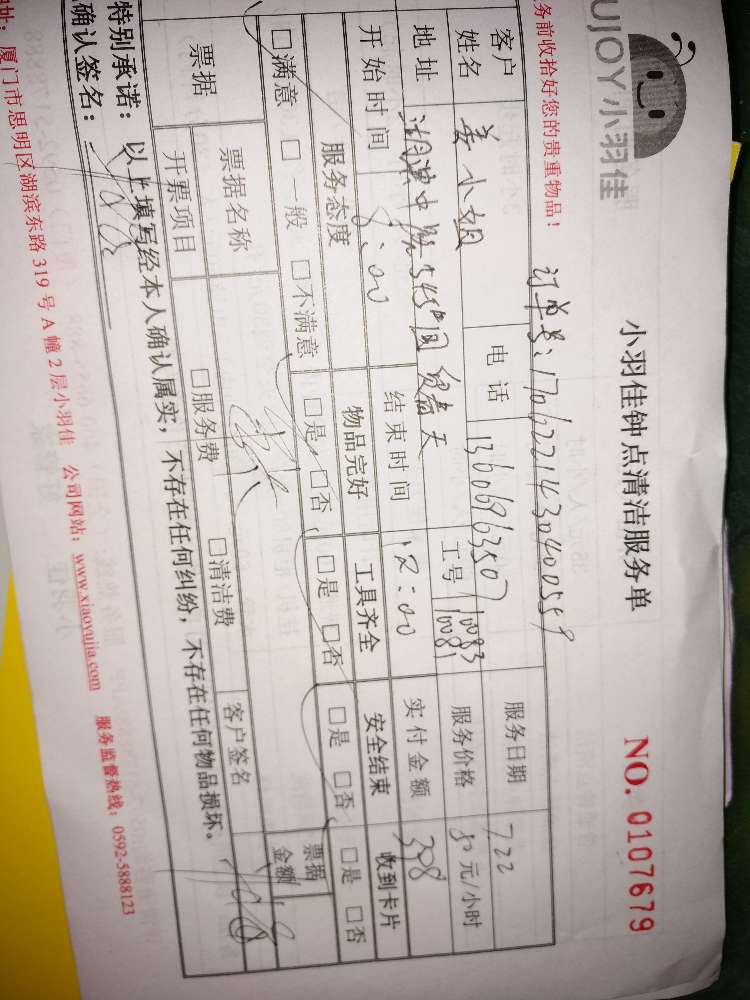 UJOY小羽佳
小羽佳钟点清洁服务单
NO. 0107679
务前收拾好您的贵重物品!
订单号:
客户姓名
姜小姐
电话
13606963507
服务日期
722
地址
工号
10083
10081
服务价格
元/小时
开始时间
8:00
结束时间
12:00
实付金额
398
服务态度
物品完好
工具齐全
安全结束
收到卡片
□满意 □一般 □不满意
□是 □否
□是 □否
□是 □否
□是 □否
票据
票据名称
票据金额
开票项目
□服务费 □清洁费
客户签名
特别承诺:以上填写经本人确认属实,不存在任何纠纷,不存在任何物品损坏。
确认签名:
址:厦门市思明区湖滨东路 319 号 A 幢 2 层小羽佳 公司网站:www.xiaoyujia.com 服务监督热线:0592-5888123